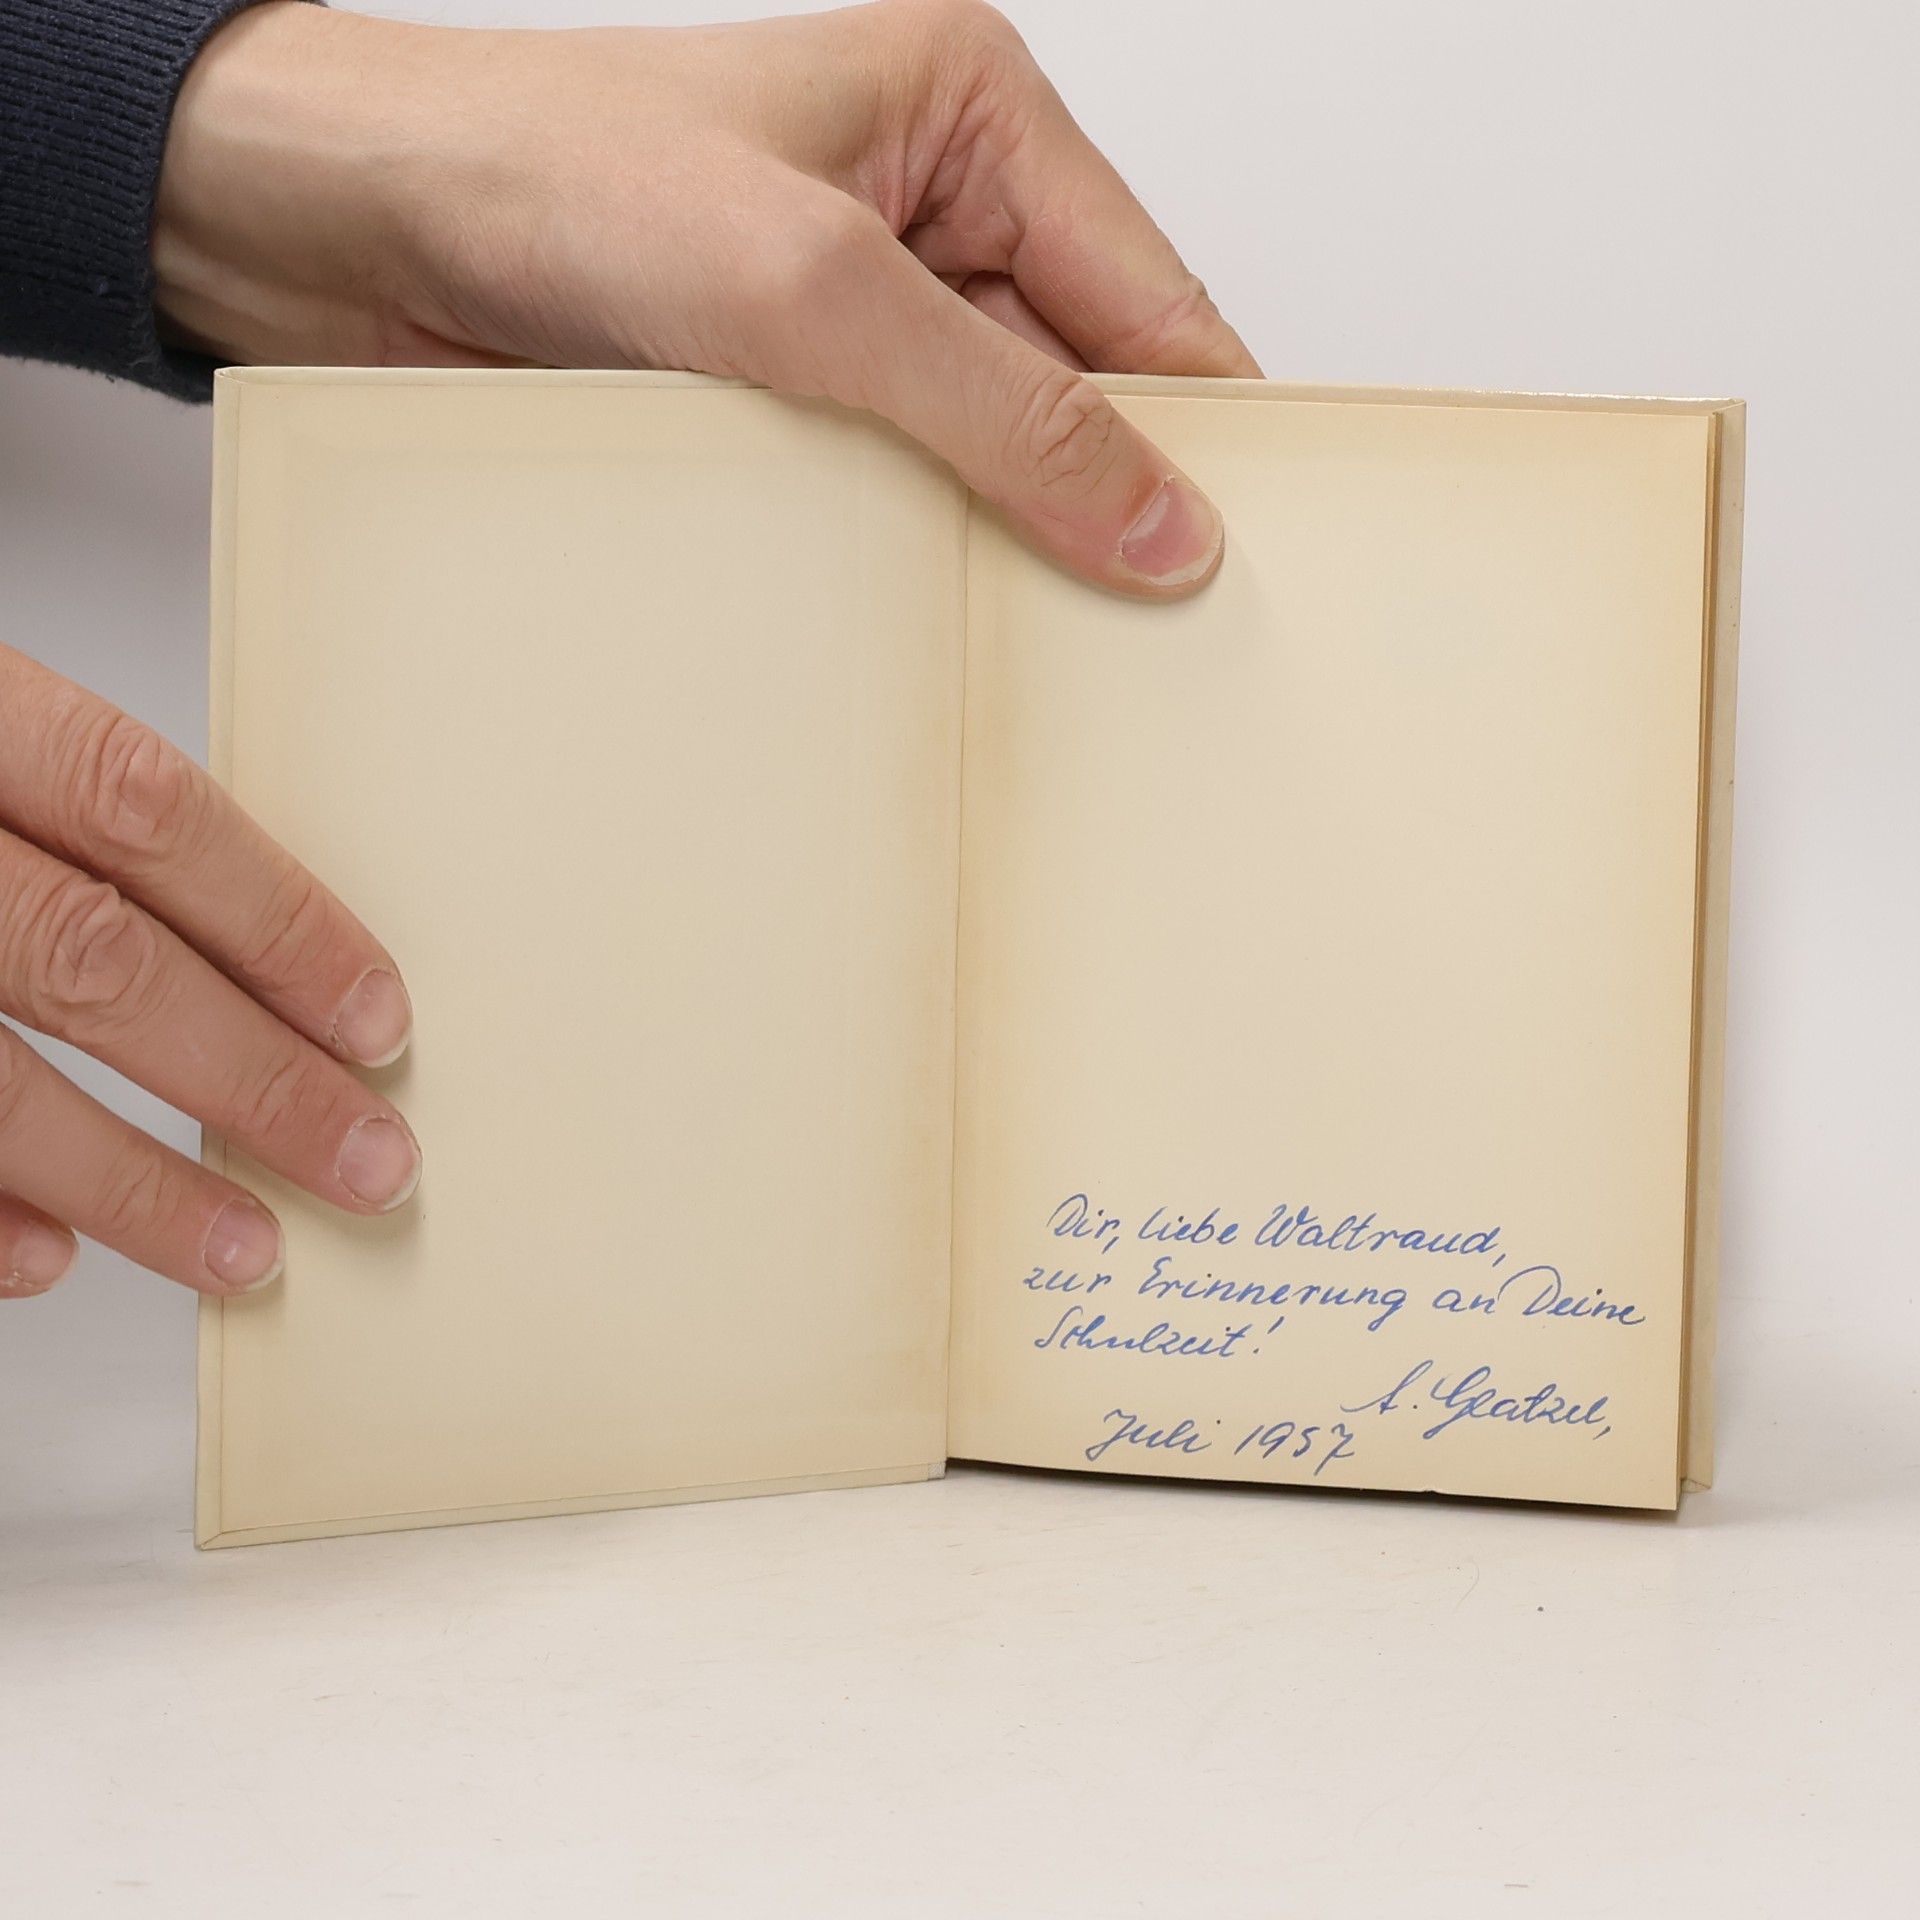 Dir, liebe Waltraud,
zur Erinnerung an Deine
Schulzeit!
A. Glatzel,
Juli 1957